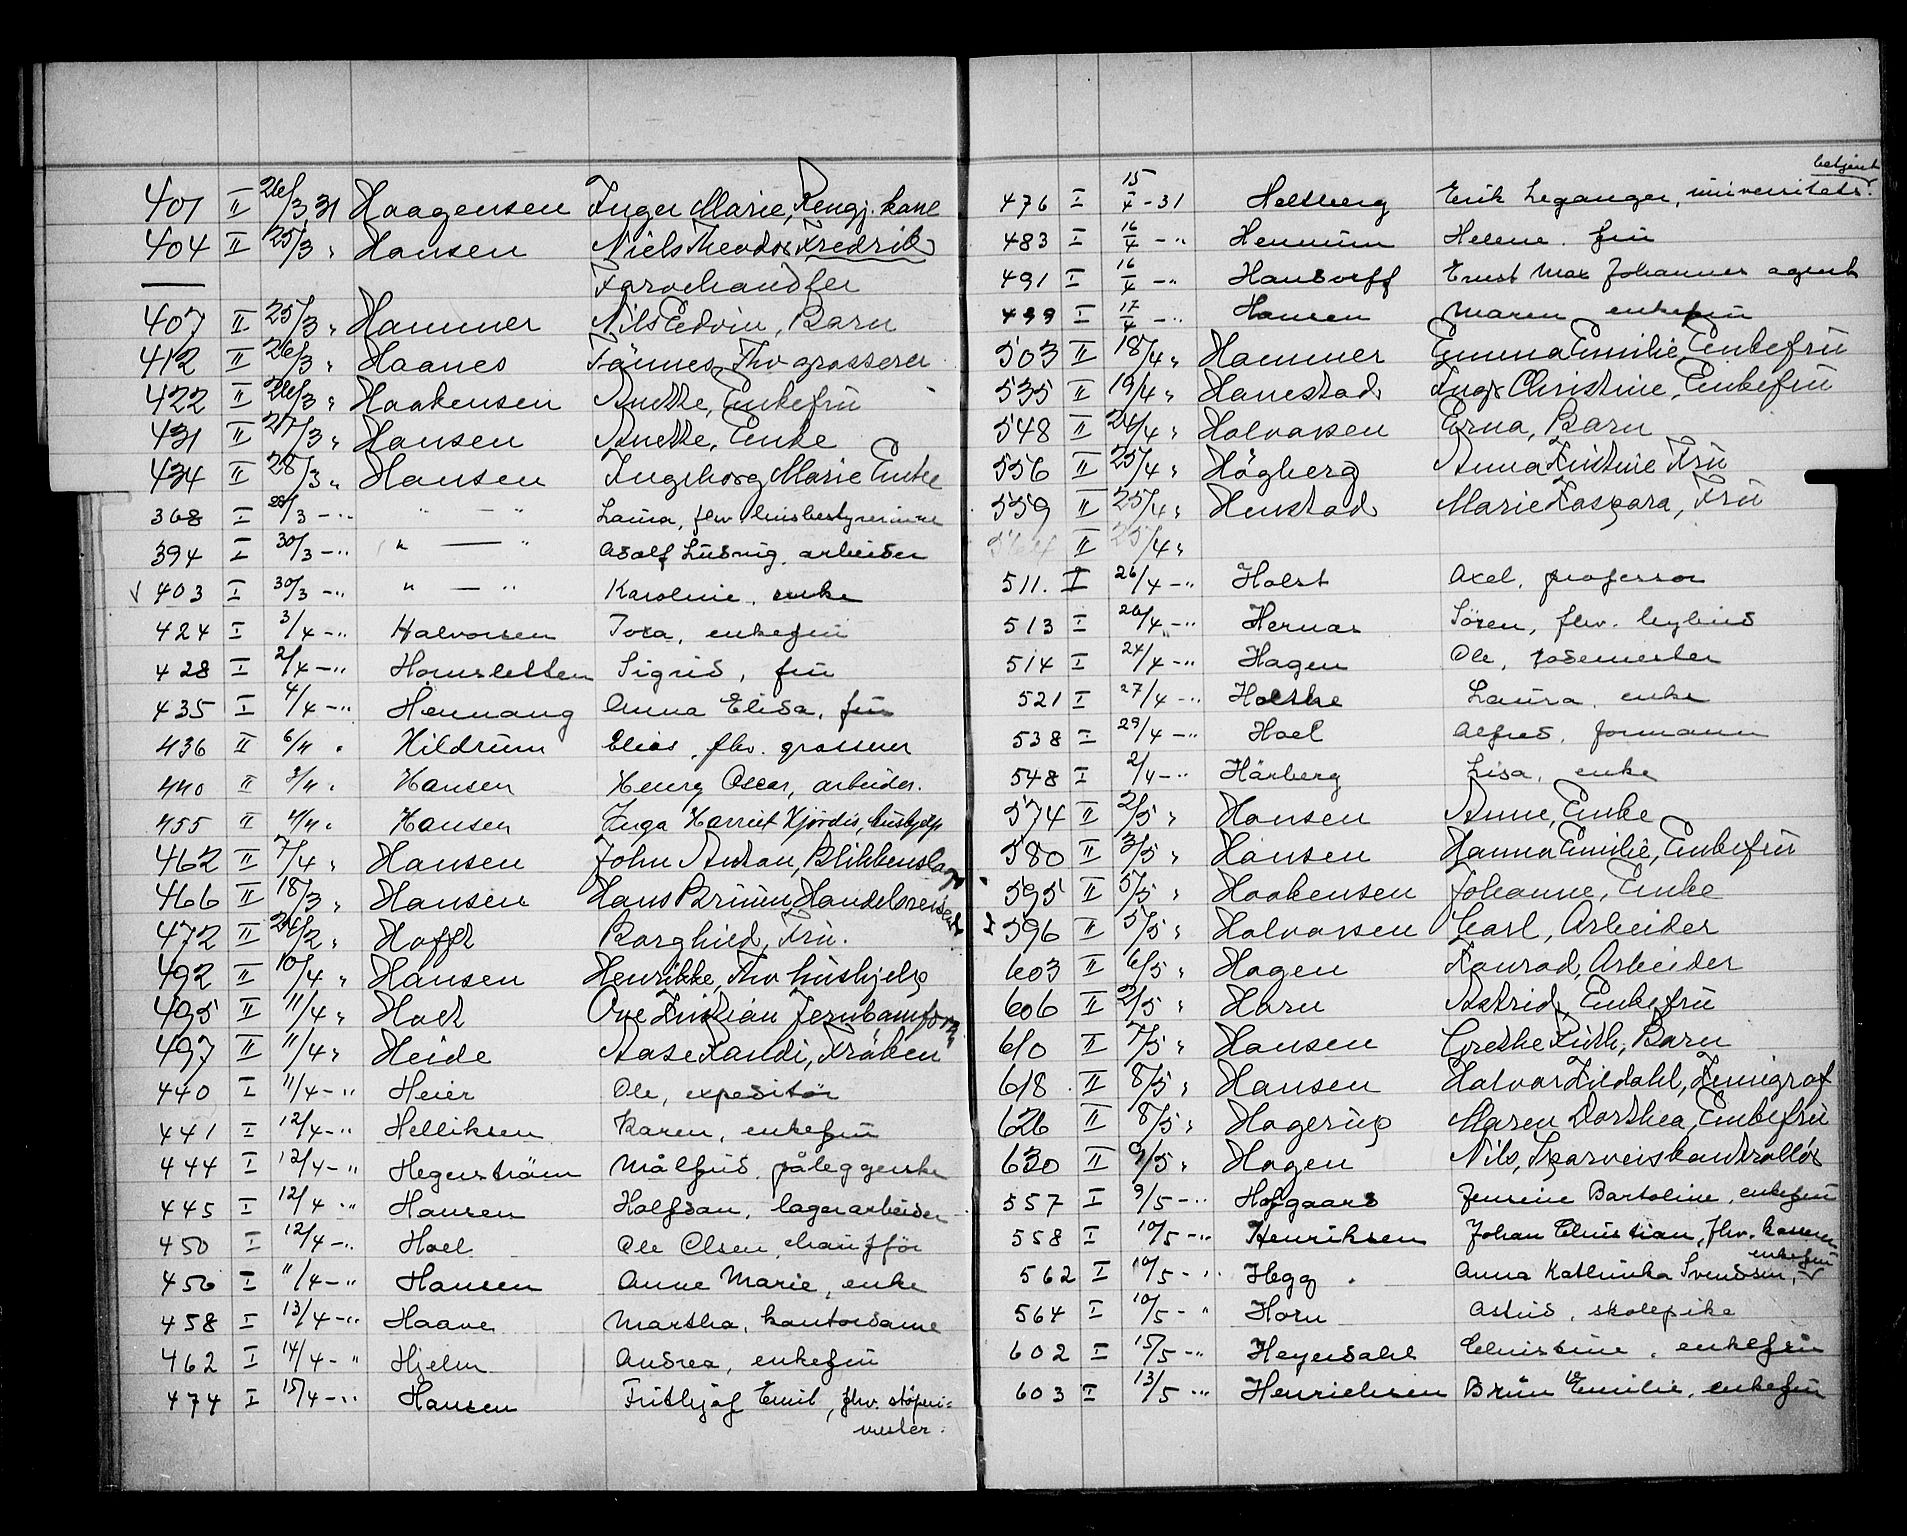 401 II 26/3 31 Haagensen Inger Marie, Rengj. kone
404 II 25/3 " Hansen Niels Theodor Fredrik
Farvehandler
407 II 25/3 " Hammer Nils Edvin, Barn
412 II 26/3 " Haanes Tönnes, Fhv grosserer
422 II 26/3 " Haakensen Anette, Enkefru
431 II 27/3 " Hansen Anette, Enke
434 II 28/3 " Hansen Ingeborg Marie Enke
368 I 28/3 - " " - " Laura, fhv. husbestyrerinne
394 I 30/3 - " " - " Adolf Ludvig, arbeider
√ 403 I 30/3 - " " - " Karoline, enke
424 I 3/4 - " Halvorsen Tora, enkefru
428 I 2/4 - " Hornsletten Sigrid, fru
435 I 4/4 - " Hennang Anna Elisa, fru
436 II 6/4 " Hildrum Elias, fhv. grosserer
440 II 8/4 " Hansen Henry Oscar, arbeider.
455 II 4/4 " Hansen Inga Harriet Hjördis, hushjelp
462 II 7/4 " Hansen John Anton, Blikkenslager
466 II 18/3 " Hansen Hans Bruun, Handelsreisende
472 II 24/2 " Hoffl Borghild, Fru.
492 II 10/4 " Hansen Henrikke, Fhv hushjelp
495 II 11/4 " Holt Ove Kristian
497 II 11/4 " Heide Aase Randi, Fröken
440 I 11/4 - " Heier Ole, expeditör
441 I 12/4 - " Helliksen Karen, enkefru
444 I 12/4 - " Hegerström Målfrid, påleggerske
445 I 12/4 " Hansen Halfdan, lagerarbeider
450 I 12/4 - " Hoel Ole Olsen, chaufför
456 I 11/4 - " Hansen Anne Marie, enke
458 I 13/4 - " Haave Martha, kontordame
462 I 14/4 - " Hjelm Andrea, enkefru
474 I 15/4 - " Hansen Frithjof Emil, fhv. støperi-
mester.
betjent
476 I 15/4 - 31 Heltberg Erik Leganger, universitets
483 I 16/4 - " Hennum Helene, fru
491 I 16/4 - " Hansdorff Ernst Max Johannes agent
499 I 17/4 - " Hansen Maren enkefru
503 II 18/4 " Hammer Emma Emilie Enkefru
535 II 19/4 " Hanestad Inga Christine, Enkefru
548 II 24/4 " Halvorsen Erna, Barn
556 II 25/4 " Högberg Anna Kristine Fru
559 II 25/4 " Henstad Marie Kaspara, Fru
564 II 25/4 "
511. I 26/4 - " Holst Axel, professor
513 I 26/4 - " Hernas Sören, fhv.
514 I 24/4 - " Hagen Ole, rodemester
521 I 27/4 - " Holthe Laura, enke
538 I 29/4 - " Hoel Alfred, formann
548 I 2/4 - " Hårberg Lisa, enke
574 II 2/5 " Hansen Anne, Enke
580 II 3/5 " Hansen Hanna Emilie, Enkefru
595 II 5/5 " Haakensen Johanne, Enke
596 II 5/5 " Halvorsen Carl, Arbeider
603 II 6/5 " Hagen Konrad, Arbeider
606 II 2/5 " Horn Astrid, Enkefru
610 II 7/5 " Hansen Grethe Ruth, Barn
618 II 8/5 " Hansen Halvor Lildahl, Kemigraf
626 II 8/5 " Hagerup Maren Dorthea, Enkefru
630 II 9/5 " Hagen Nils, Sporveiskontrollör
557 I 9/5 - " Hofgaard Jensine Bartoline, enkefru
558 I 10/5 - " Henriksen Johan Christian, fhv. kasserer
enkefru
562 I 10/5 - " Hegg Anna Kathinka Svendsen,
564 I 10/5 - " Horn Astrid, skolepike
602 I 15/5 - " Heyerdahl Christine, enkefru
603 I 13/5 - " Henrichsen Brun Emilie, enkefru